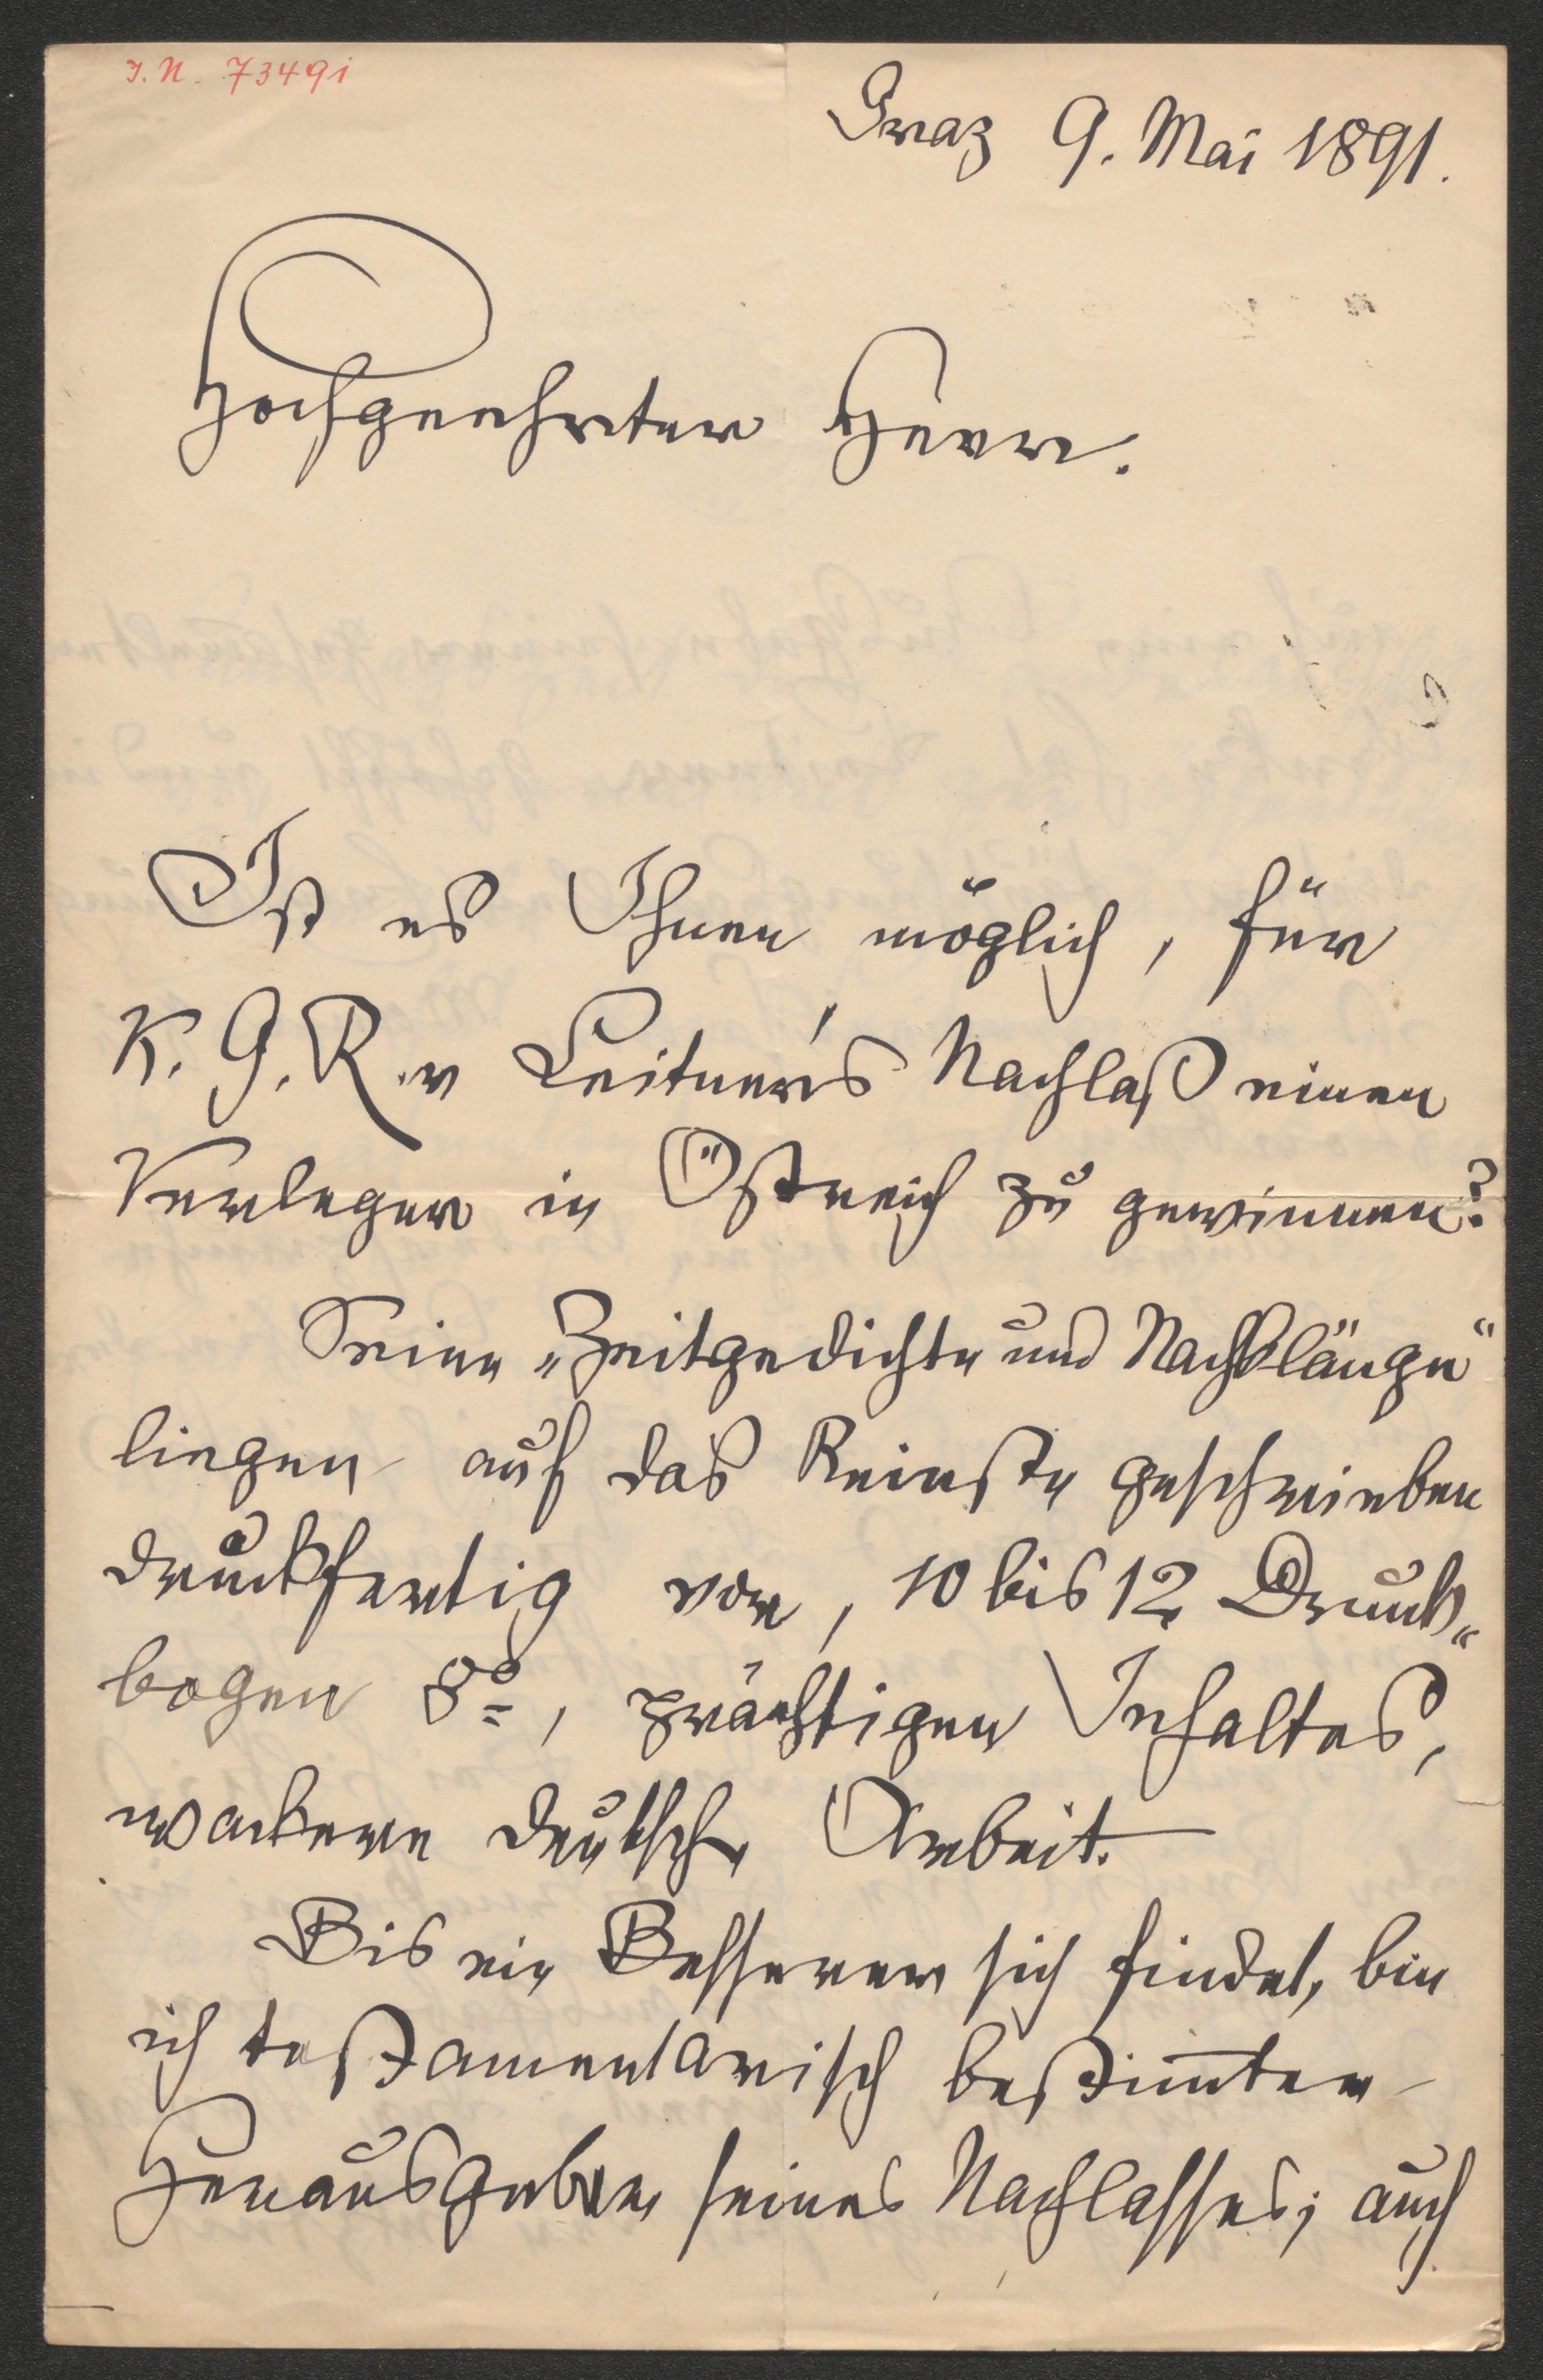 I.N. 73491
Graz 9. Mai 1891.
Hochgeehrter Herr.
Ist es Ihnen möglich, für
K. G. R. v Leitner's Nachlaß einen
Verleger in Östreich zu gewinnen?
Seine „Zeitgedichte und Nachklänge“
liegen auf das Reinste geschrieben
druckfertig vor, 10 bis 12 Druck„
bogen 8º, prächtigen Inhaltes,
wackere deutsche Arbeit.
Bis ein Besserer sich findet, bin
ich testamentarisch bestim̄ter
Herausgeber seines Nachlasses; auch